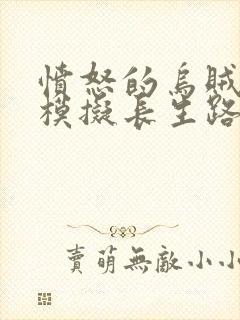 憤怒的烏賊
模擬長生路
賣萌無敵小小